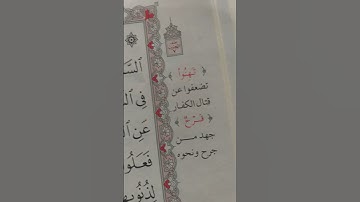 ﴿ تَهِنُوا ﴾
تضعفوا عن
قتال الكفار
﴿ قَرْحٌ ﴾
جهد من
جرح ونحوه
السَّ
فِي ال
عَنِ ال
فَعَلُو
لِذُنُوبِهِ